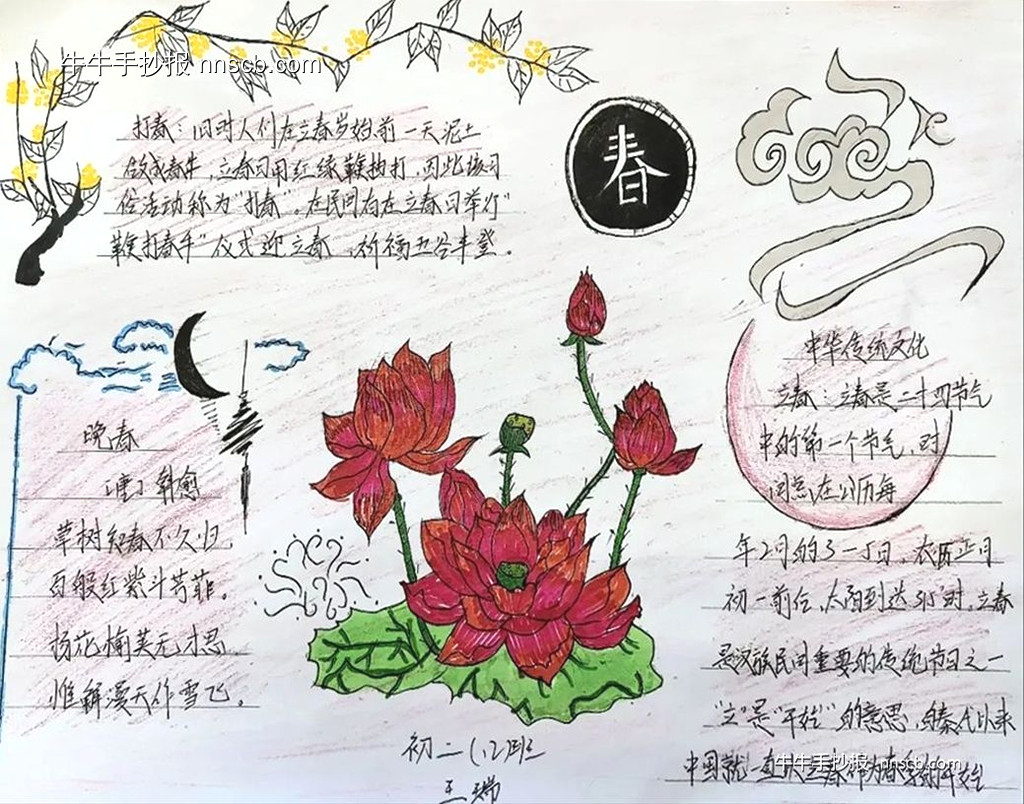 牛牛手抄报 nnscb.com
打春：旧时人们在立春岁始前一天泥土
做成春牛，立春日用红绿鞭抽打，因此该习
俗活动称为“打春”。在民间有在立春日举行“
鞭打春牛”仪式迎立春，祈福五谷丰登。
春
晚春
〔唐〕韩愈
草树知春不久归，
百般红紫斗芳菲。
杨花榆荚无才思
惟解漫天作雪飞。
中华传统文化
立春：立春是二十四节气
中的第一个节气，时
间点在公历每
年2月的3一5日，农历正月
初一前后，太阳到达315°时，立春
是汉族民间重要的传统节日之一
“立”是“开始”的意思，自秦代以来
中国就一直以立春作为春季的开始
初二(12)班
王瑞
牛牛手抄报 nnscb.com